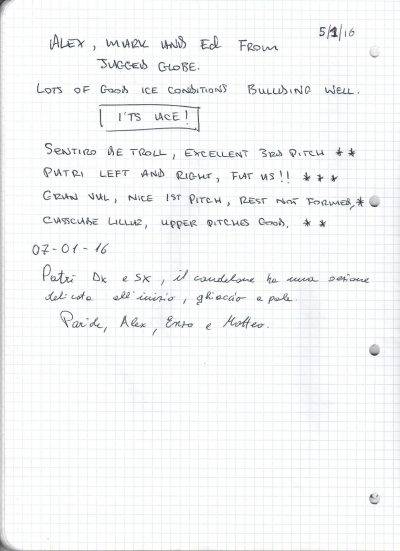 5/1/16
ALEX, MARK AND ED FROM
JAGGED GLOBE.
LOTS OF GOOD ICE CONDITIONS BUILDING WELL.
I'TS ACE!
SENTIRO DE TROLL, EXCELLENT 3RD PITCH **
PATRI LEFT AND RIGHT, FAT AS!! ***
GRAN VAL, NICE 1ST PITCH, REST NOT FORMED, *
CASSCADE LILLAZ, UPPER PITCHES GOOD. **
07-01-16
Patri Dx e Sx, il candelone ha una sezione
delicata all'inizio, ghiaccio a pale.
Paride, Alex, Enzo e Matteo.